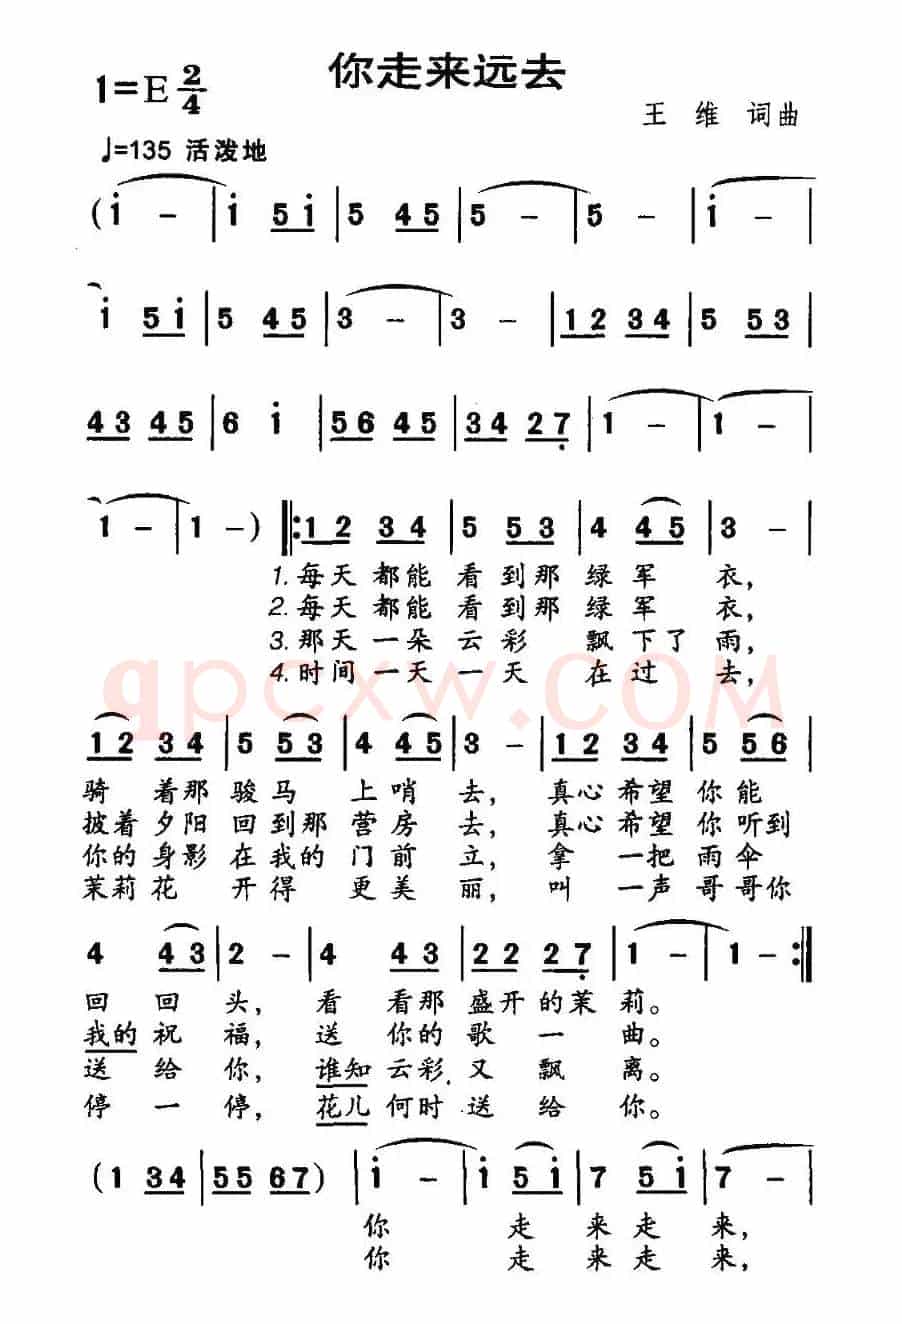 你走来远去
1=E 2/4
王 维 词曲
♩=135 活泼地
(i - | i 5i | 5 45 | 5 - | 5 - | i - |
i 5i | 5 45 | 3 - | 3 - | 12 34 | 5 53 |
43 45 | 6 i | 56 45 | 34 27 | 1 - | 1 - |
1 - | 1 -) ‖: 12 34 | 5 53 | 4 45 | 3 - |
1.每天都能看到那绿军衣,
2.每天都能看到那绿军衣,
3.那天一朵云彩飘下了雨,
4.时间一天一天在过去,
qpcxw.COM
12 34 | 5 53 | 4 45 | 3 - | 12 34 | 5 56 |
骑着那骏马上哨去,真心希望你能
披着夕阳回到那营房去,真心希望你听到
你的身影在我的门前立,拿一把雨伞
茉莉花开得更美丽,叫一声哥哥你
4 43 | 2 - | 4 43 | 22 27 | 1 - | 1 - :‖
回回头,看看那盛开的茉莉。
我的祝福,送你的歌一曲。
送给你,谁知云彩,又飘离。
停一停,花儿何时送给你。
(1 34 | 55 67) | i - | i 5i | 7 5i | 7 - |
你走来走来,
你走来走来,